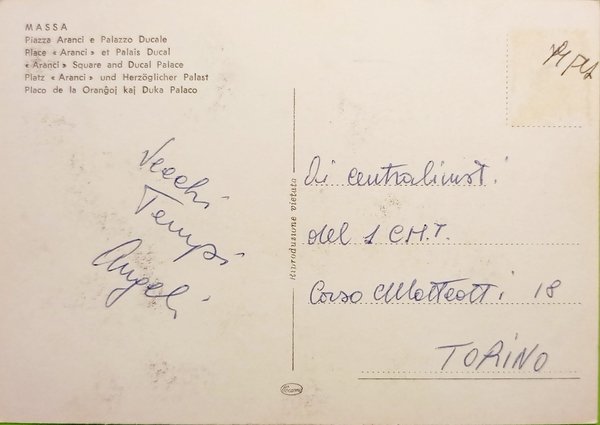 MASSA
Piazza Aranci e Palazzo Ducale
Place « Aranci » et Palais Ducal
« Aranci » Square and Ducal Palace
Platz « Aranci » und Herzöglicher Palast
Placo de la Oranĝoj kaj Duka Palaco
Vecchi
Tempi
Angeli
Riproduzione vietata
Ai centralinisti
del 1 C.M.T.
Corso Matteotti 18
TORINO